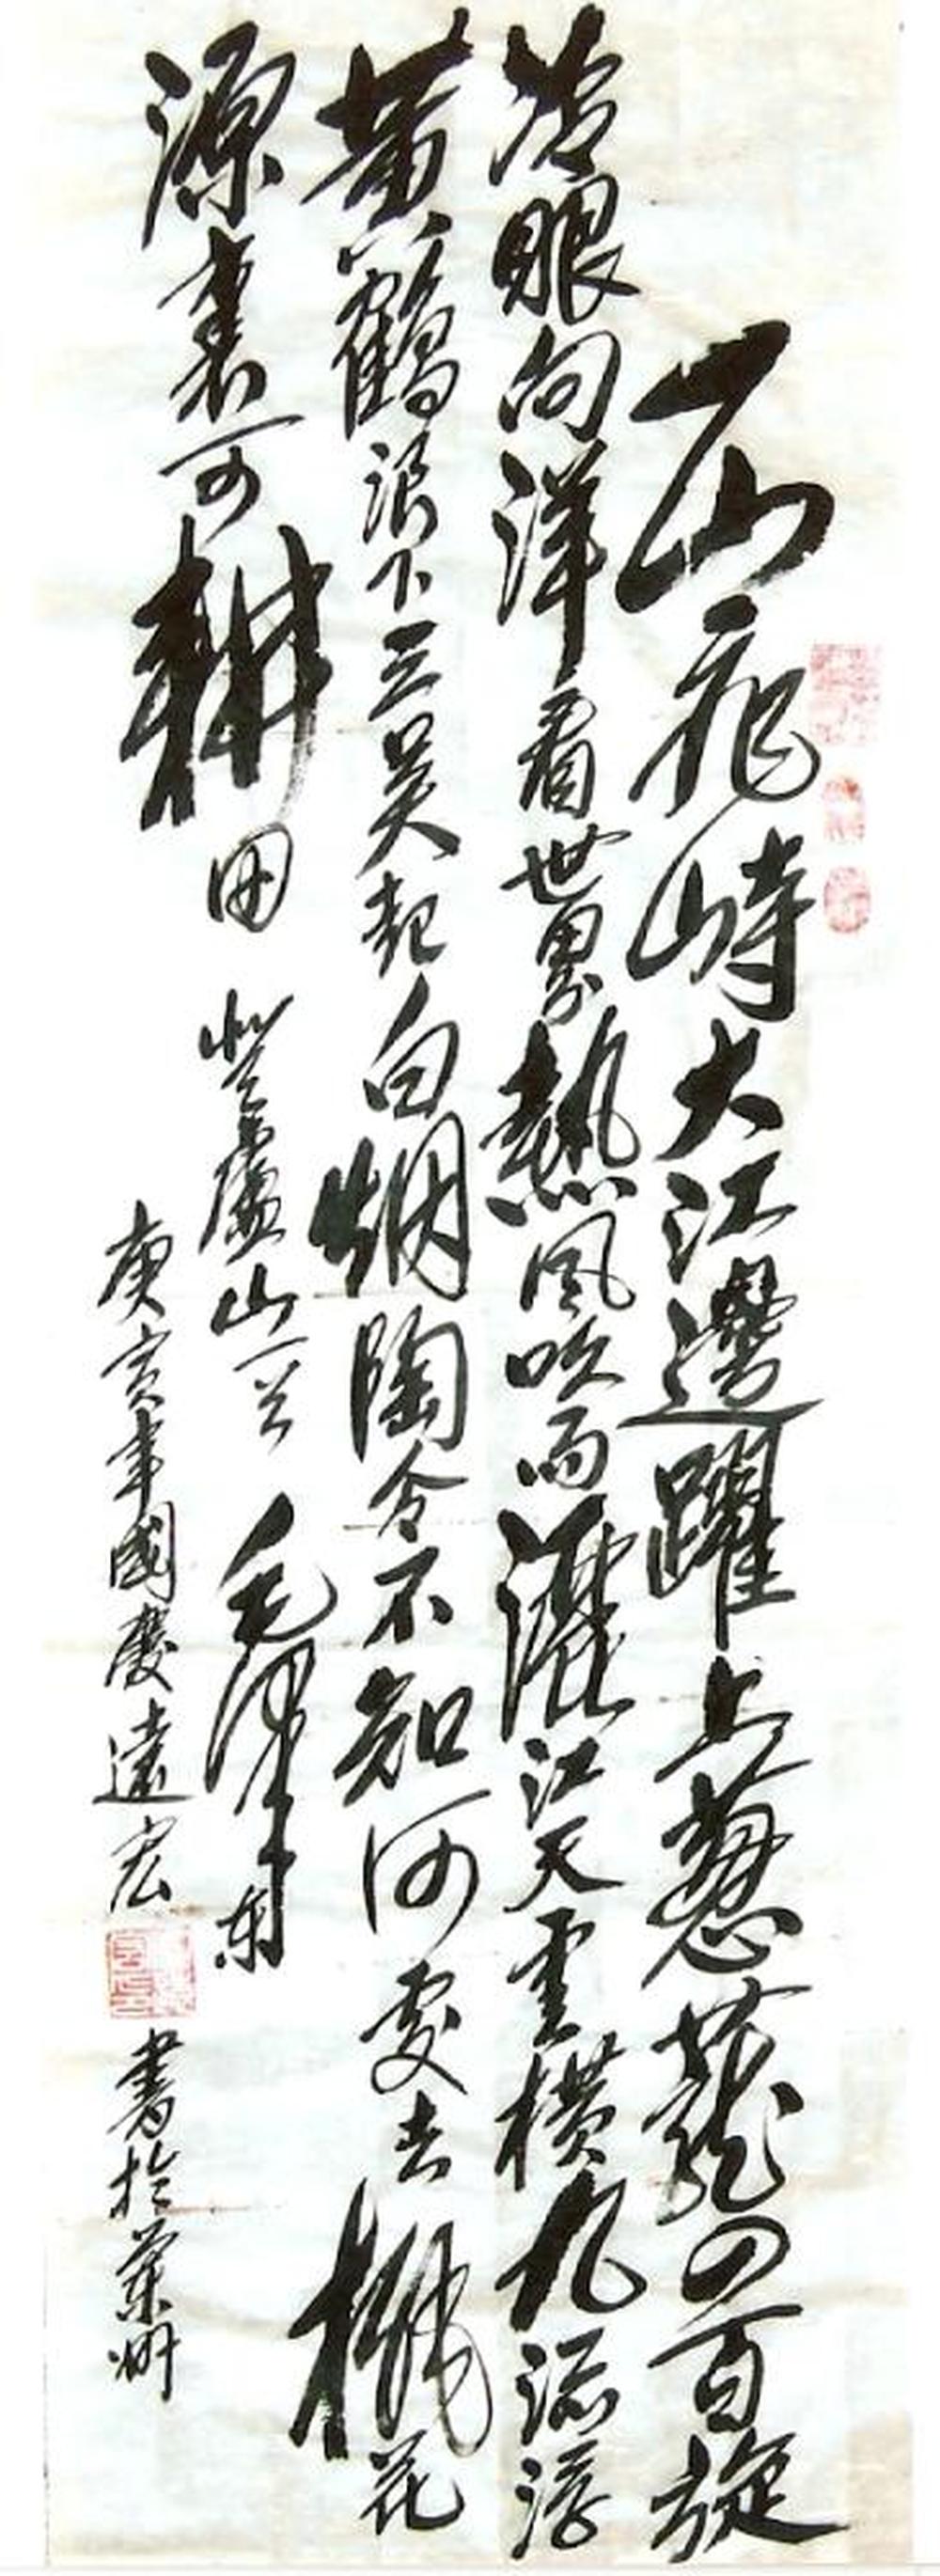 一山飛峙大江邊躍上蔥蘢四百旋
冷眼向洋看世界熱風吹雨灑江天雲橫九派浮
黃鶴浪下三吳起白烟陶令不知何處去桃花
源裏可耕田 登廬山一首 毛澤东
庚寅年國慶遠宏 書於蘭州